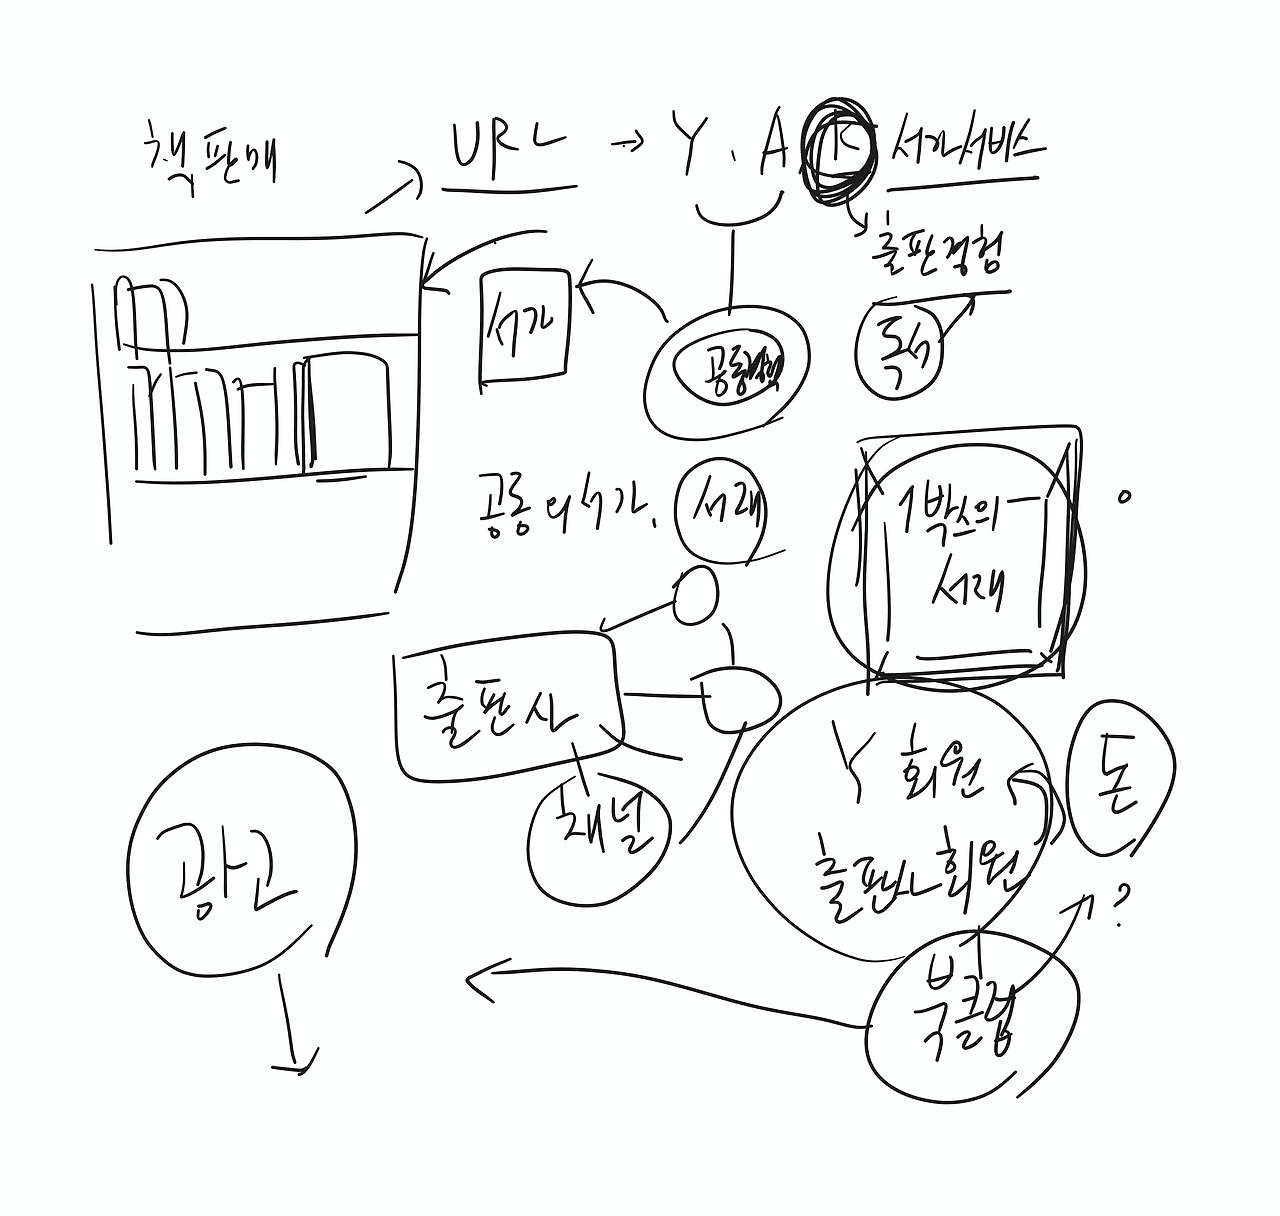 책판매
URL → Y . A K 서가서비스
출판경험
서가
독서
공동의서가, 서재
1박스의
서재
출판사
채널
광고
Y 회원
출판사회원
돈
?
북클럽